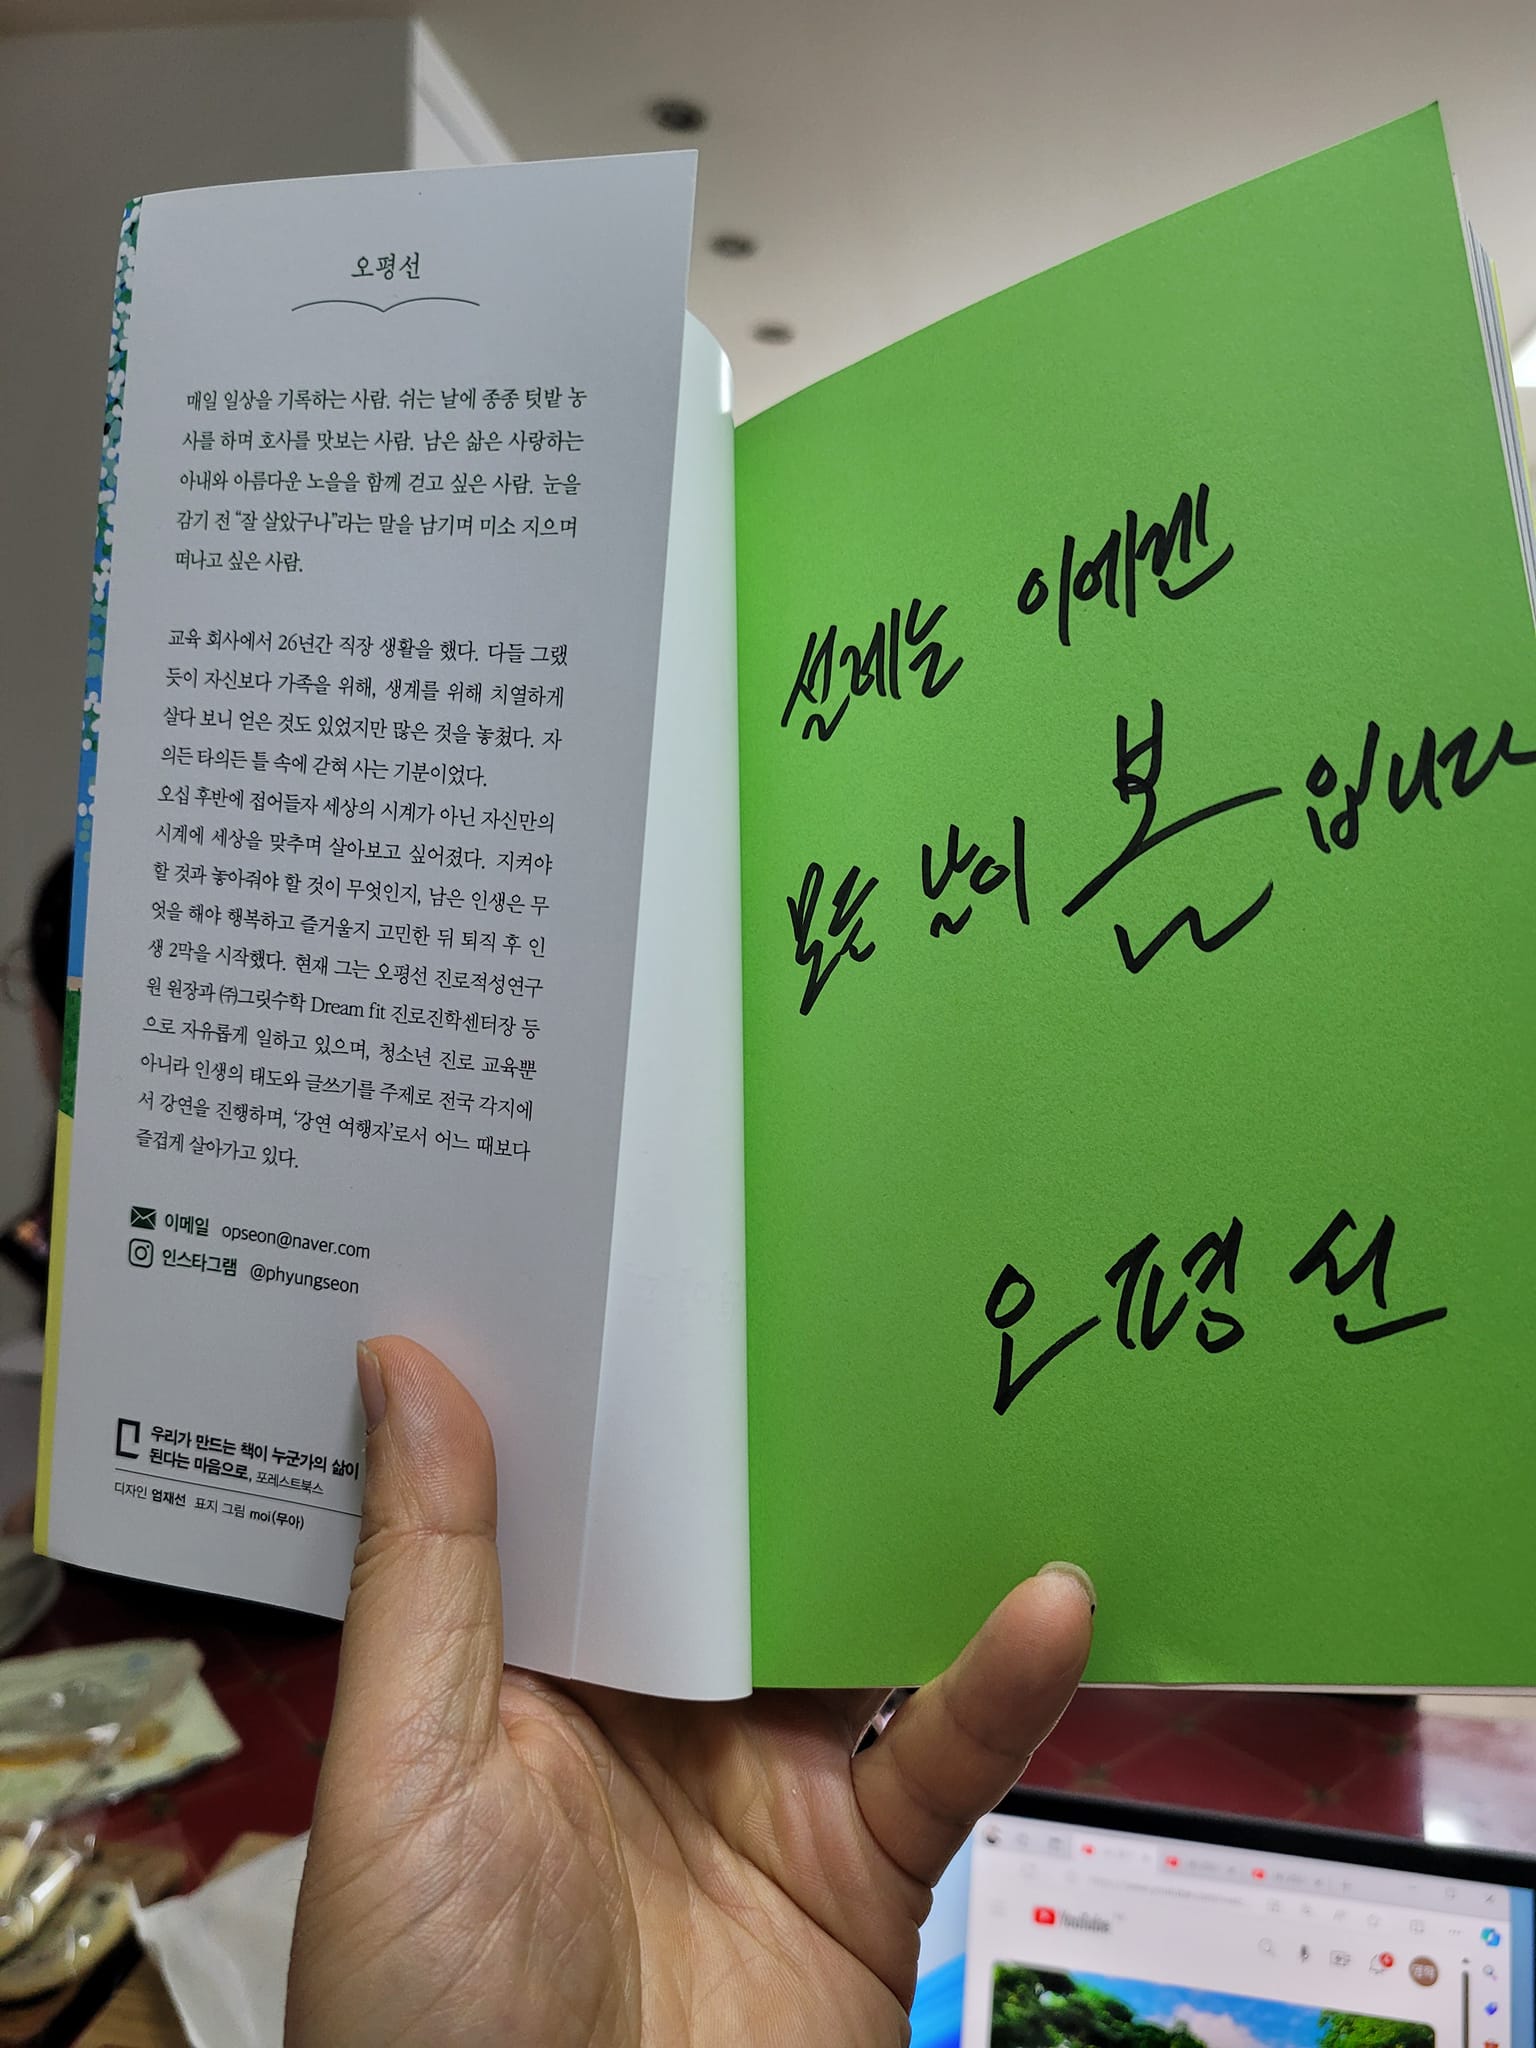 오평선
매일 일상을 기록하는 사람. 쉬는 날에 종종 텃밭 농
사를 하며 호사를 맛보는 사람. 남은 삶은 사랑하는
아내와 아름다운 노을을 함께 걷고 싶은 사람. 눈을
감기 전 “잘 살았구나”라는 말을 남기며 미소 지으며
떠나고 싶은 사람.
교육 회사에서 26년간 직장 생활을 했다. 다들 그랬
듯이 자신보다 가족을 위해, 생계를 위해 치열하게
살다 보니 얻은 것도 있었지만 많은 것을 놓쳤다. 자
의든 타의든 틀 속에 갇혀 사는 기분이었다.
오십 후반에 접어들자 세상의 시계가 아닌 자신만의
시계에 세상을 맞추며 살아보고 싶어졌다. 지켜야
할 것과 놓아줘야 할 것이 무엇인지, 남은 인생은 무
엇을 해야 행복하고 즐거울지 고민한 뒤 퇴직 후 인
생 2막을 시작했다. 현재 그는 오평선 진로적성연구
원 원장과 ㈜그릿수학 Dream fit 진로진학센터장 등
으로 자유롭게 일하고 있으며, 청소년 진로 교육뿐
아니라 인생의 태도와 글쓰기를 주제로 전국 각지에
서 강연을 진행하며, ‘강연 여행자’로서 어느 때보다
즐겁게 살아가고 있다.
이메일 opseon@naver.com
인스타그램 @phyungseon
우리가 만드는 책이 누군가의 삶이
된다는 마음으로, 포레스트북스
디자인 엄재선 표지 그림 moi(무아)
설레는 이에겐
모든 날이 봄 입니다
오평선
YouTube